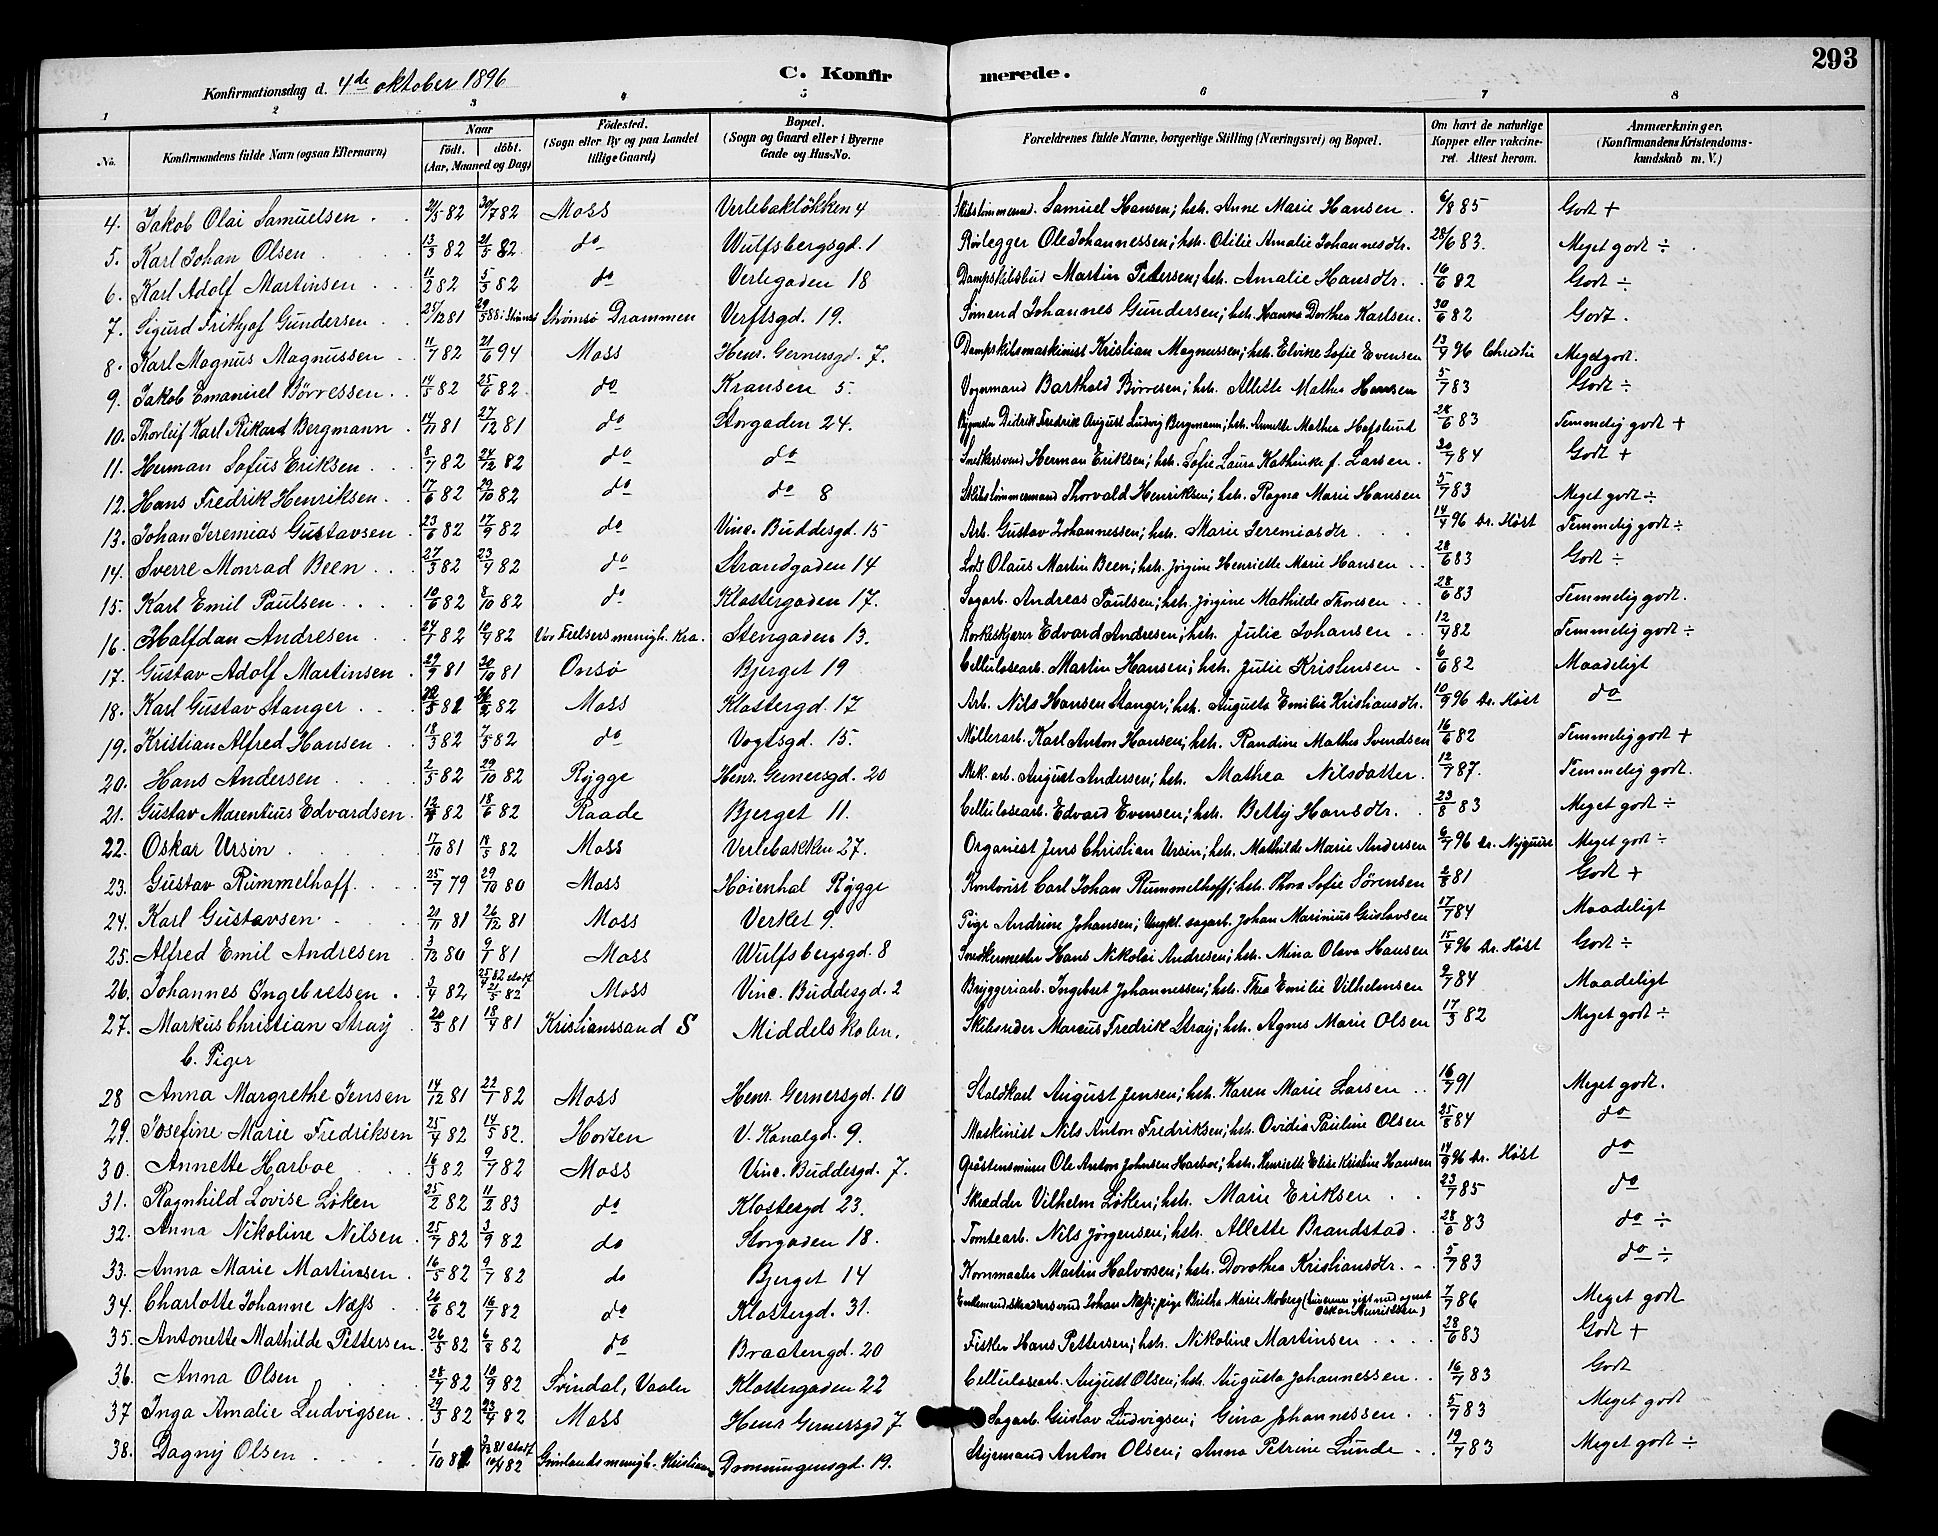 293
Konfirmationsdag d. 4de oktober 1896 C. Konfirmerede.
1 2 3 4 5 6 7 8
No. Konfirmandens fulde Navn (ogsaa Efternavn) Naar födt. döbt. (Aar, Maaned og Dag) Födested. (Sogn eller By og paa Landet tillige Gaard) Bopæl. (Sogn og Gaard eller i Byerne Gade og Hus-No. Forældrenes fulde Navne, borgerlige Stilling (Næringsvei) og Bopæl. Om havt de naturlige Kopper eller vakcineret. Attest herom. Anmærkninger. (Konfirmandens Kristendomskundskab m. V.)
4. Jakob Olai Samuelsen 21/5 82 30/7 82 Moss Verlebakløkken 4 Skibstømmermd. Samuel Hansen; hstr. Anne Marie Hansen. 6/8 85 Godt +
5. Karl Johan Olsen 13/3 82 21/5 82 do Wulfsbergsgd. 1 Rørlegger Ole Johannessen; hstr. Otilie Amalie Johannesdtr. 28/6 83. Meget godt ÷
6. Karl Adolf Martinsen 11/2 82 5/3 82 do Verlegaden 18 Dampskibsbud Martin Petersen; hstr. Amalie Hansdtr. 16/6 82 Godt ÷
7. Sigurd Frithjof Gundersen 25/12 81 Strømsø Drammen Verftsgd. 19. Sømend Johannes Gundersen; hstr. Hanna Dorthea Karlsen. 30/6 82 Godt.
8. Karl Magnus Magnussen 11/7 82 21/6 94 Moss Henr. Gernersgd. 7. Dampskibsmaskinist Kristian Magnussen; hstr. Elvine Sofie Evensen 13/4 96 Christie Meget godt.
9. Jakob Emanuel Børressen 14/5 82 25/6 82 do Kransen 5. Vognmand Barthold Børresen; hstr. Allette Mathea Hansen 5/7 83 Godt ÷
10. Thorleif Karl Rikard Bergmann 14/11 81 27/12 81 do Storgaden 24. Didrik Fredrik August Ludvig Bergmann; hstr. Annette Mathea Hafslund 28/6 83 Temmelig godt +
11. Herman Sofus Eriksen 8/9 82 24/12 82 do do Snedkersvend Herman Eriksen; hstr. Sofie Laura Kathinka f. Larsen. 30/7 84 Godt +
12. Hans Fredrik Henriksen 17/6 82 29/10 82 do do 8 Skibstømmermand Thorvald Henriksen; hstr. Ragna Marie Hansen 5/7 83 Meget godt ÷
13. Johan Jeremias Gustavsen 23/6 82 17/9 82 do Vinc. Buddesgd. 15 Arb. Gustav Johannessen; hstr. Marie Jeremiasdtr. 14/4 96 Dr. Høst Temmelig godt ÷
14. Sverre Monrad Been 27/3 82 23/4 82 do Strandgaden 14 Lods Olaus Martin Been; hstr. Jørgine Henriette Marie Hansen 28/6 83 Godt ÷
15. Karl Emil Paulsen 10/6 82 8/10 82 do Klostergaden 17. Sagarb. Andreas Paulsen; hstr. Jørgine Mathilde Thoresen 28/6 83 Temmelig godt.
16. Halfdan Andresen 24/7 82 10/9 82 Vor Frelsers menigh. Kra. Stengaden 13. Korkeskjærer Edvard Andresen; hstr. Julie Johansen 12/4 82 Temmelig godt ÷
17. Gustav Adolf Martinsen 29/9 81 30/10 81 Onsø Bjerget 19 Cellulosearb. Martin Hansen; hstr. Julie Kristensen 6/6 82 Maadeligt
18. Karl Gustav Stanger Moss Klostergd. 17 Arb. Nils Hansen Stanger; hstr. Augusta Emilie Kristiansdtr. 10/9 96 Dr. Høst do
19. Kristian Alfred Hansen 18/3 82 7/5 82 do Vogtsgd. 15. Møllerarb. Karl Anton Hansen; hstr. Randine Mathea Svendsen 16/6 82 Temmelig godt +
20. Hans Andersen 2/5 82 29/10 82 Rygge Henr. Gernersgd. 20 Mek. arb. August Andersen; hstr. Mathea Nilsdatter. 12/7 87. Temmelig godt.
21. Gustav Marentius Edvardsen 82 18/6 82 Raade Bjerget 11. Cellulosearb. Edvard Evensen; hstr. Betty Hansdtr. 23/8 83 Meget godt ÷
22. Oskar Ursin 17/10 81 19/5 82 Moss Verlebakken 27. Organist Jens Christian Ursin; hstr. Mathilde Marie Andersen 6/7 96 Dr. Nyquist Meget godt ÷
23. Gustav Rummelhoff. 25/7 79 29/10 80 Moss Høienhal Rygge Kontorist Carl Johan Rummelhoff; hstr. Thora Sofie Sørensen 2/8 81 Godt +
24. Karl Gustavsen 21/11 81 26/12 81 Moss Verket 9. Pige Andrine Johansen; Ungkl. sagarb. Johan Marinius Gustavsen 17/7 84 Maadeligt
25. Alfred Emil Andresen 3/12 80 9/1 81 Moss Wulfsbergsgd. 8 Snedkermester Hans Nikolai Andresen; hstr. Mina Olava Hansen 15/4 96 Dr. Høst Godt ÷
26. Johannes Ingebretsen 3/4 82 25/4 82 stadf. 21/5 82 Moss Vinc. Buddesgd. 2 Bryggeriarb. Ingebret Johannessen; hstr. Thea Emilie Vilhelmsen 2/7 84 Maadeligt
27. Markus Christian Stray 20/3 81 18/4 81 Kristianssand S Middelskolen. Skibsreder Marcus Fredrik Stray; hstr. Agnes Marie Olsen 17/3 82 Meget godt ÷
b. Piger
28 Anna Margrethe Jensen 14/12 81 22/1 82 Moss Henr. Gernersgd. 10 Staldkarl August Jensen; hstr. Karen Marie Larsen 16/7 91 Meget godt.
29. Josefine Marie Fredriksen 25/4 82 14/5 82. Horten V. Kanalgd. 9. Maskinist Nils Anton Fredriksen; hstr. Ovidia Pauline Olsen 25/8 84 do
30. Annette Harboe 16/3 82 9/7 82 Moss Vinc. Buddesgd. 7. Gråstensminer Ole Anton Johnsen Harboe; hstr. Henriette Elise Kristine Hansen 14/9 96 Dr. Høst do
31. Ragnhild Lovise Løken 25/2 82 11/2 83 do Klostergd 23. Skrædder Vilhelm Løken; hstr. Marie Eriksen 23/7 85 do
32. Anna Nikoline Nilsen 25/7 82 3/9 82 do Storgaden 18. Tomtearb. Nils Jørgensen; hstr. Allette Brandstad. 28/6 83 do ÷
33. Anna Marie Martinsen 16/5 82 9/7 82 do Bjerget 14 Kornmaaler Martin Halvosen; hstr. Dorothea Kristiansdtr. 5/7 83 do ÷
34. Charlotte Johanne Næss 26/6 82 16/7 82 do Klostergd. 31. Johan Næss; pige Birtha Marie Moberg (hun er nu gift med agent Oskar Henriksen) 7/7 86 Meget godt
35. Antonette Mathilde Pettersen 26/5 82 6/8 82 do Braatengd. 20 Fisker Hans Pettersen; hstr. Nikoline Martinsen 28/6 83 Godt +
36. Anna Olsen 28/7 82 10/9 82 Svindal, Vaaler Klostergaden 22 Cellulosearb. August Olsen; hstr. Augusta Johannessen 16/7 83 Godt
37 Inga Amalie Ludvigsen 29/3 82 23/4 82 Moss Henr Gernersgd 7. Sagarb. Gustav Ludvigsen; Gina Johannessen 5/7 83 Meget godt
38. Dagny Olsen 1/10 81 3/12 81 stadf. 10/4 82 Grønlands menigh. Kristiania Dronningensgd. 19. Styrmand Anton Olsen; Anna Petrine Lunde 19/7 83 Meget godt ÷